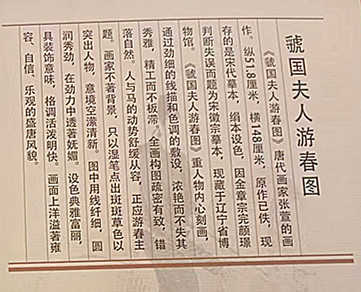 虢国夫人游春图
《虢国夫人游春图》唐代画家张萱的画
作。纵51.8厘米，横148厘米，原作已佚，现
存的是宋代摹本，绢本设色，因金章宗完颜璟
判断失误而题为宋徽宗摹本，现藏于辽宁省博
物馆。《虢国夫人游春图》重人物内心刻画，
通过劲细的线描和色调的敷设，浓艳而不失其
秀雅，精工而不板滞。全画构图疏密有致，错
落自然。人与马的动势舒缓从容，正应游春主
题。画家不著背景，只以湿笔点出斑斑草色以
突出人物，意境空濛清新。图中用线纤细，圆
润秀劲，在劲力中透著妩媚。设色典雅富丽，
具装饰意味，格调活泼明快。画面上洋溢著雍
容、自信、乐观的盛唐风貌。